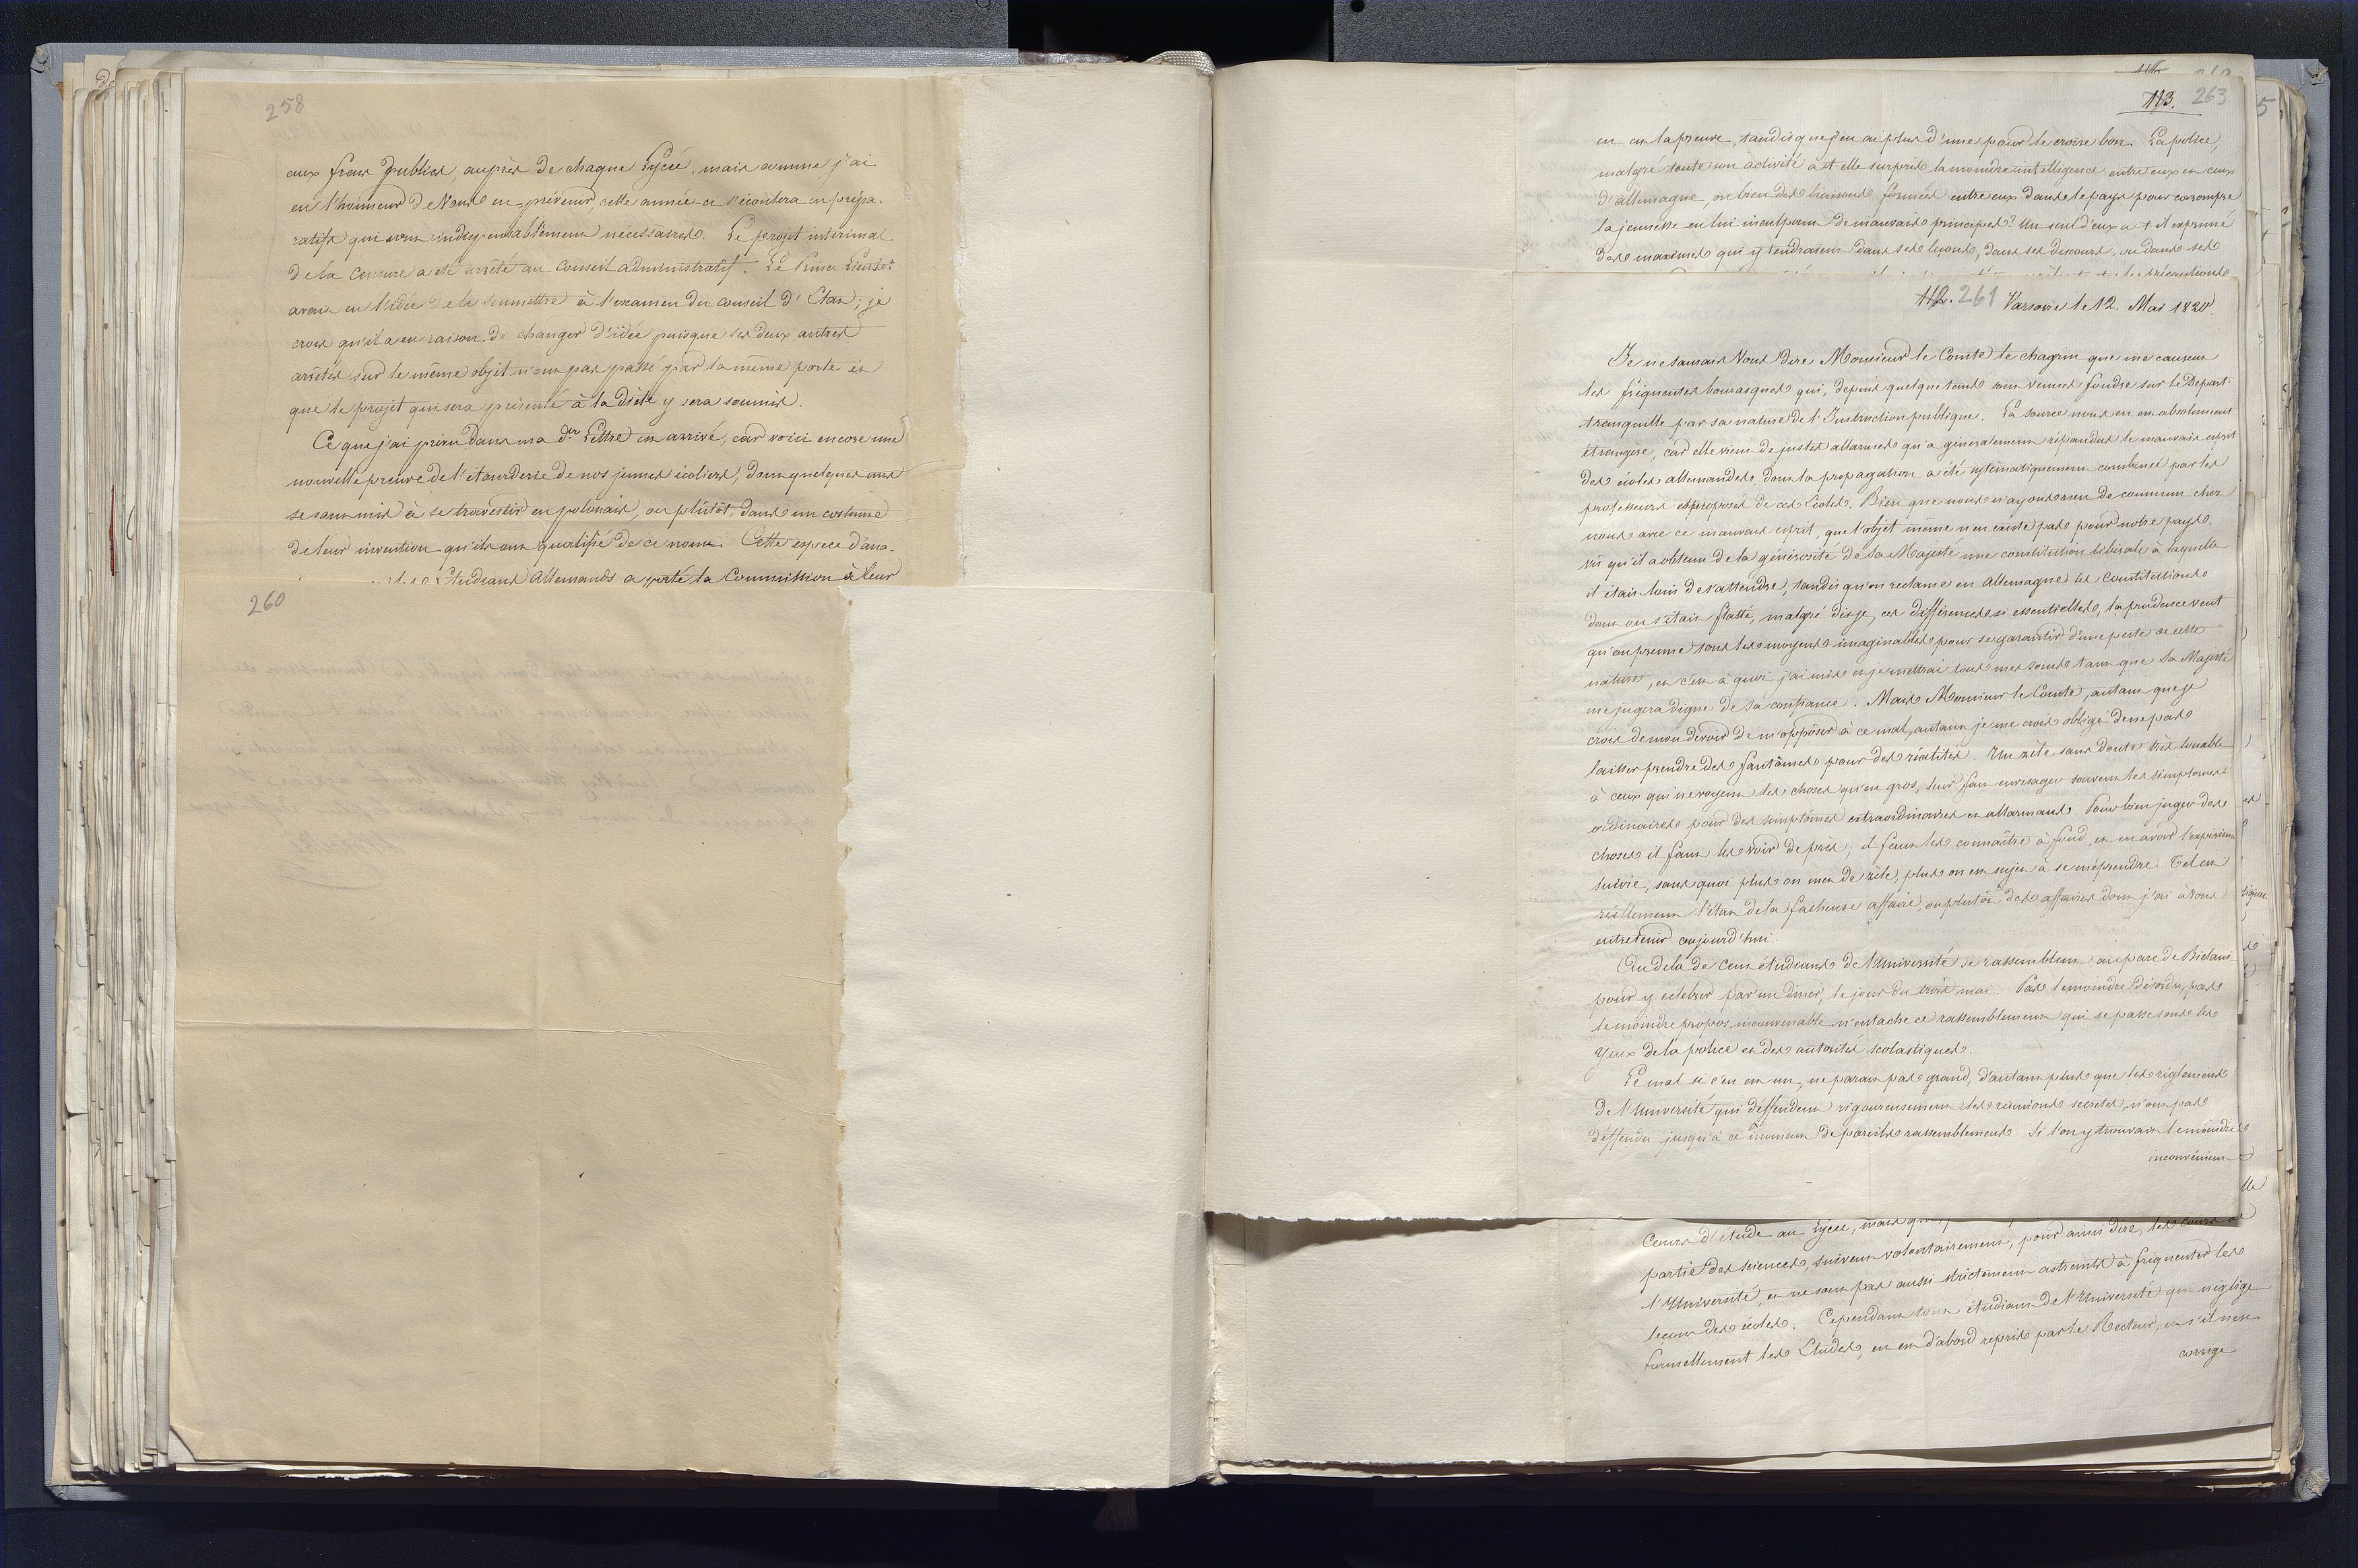 258
aux frais publics, auprès de chaque Lycée, mais comme j'ai
eu l'honneur de Vous en prévenir, cette année-ci s'écoulera en prépa-
ratifs qui sont indispensablement nécessaires. Le projet intérimal
de la censure a été arrêté au Conseil administratif. Le Prince Lieut:
avait eu l'idée de le soumettre à l'examen du conseil d'Etat; je
crois qu'il a eu raison de changer d'idée puisque les deux autres
arrêtés sur le même objet n'ont pas passé par la même porte et
que le projet qui sera présenté à la diète y sera soumis.
Ce que j'ai prévu dans ma der Lettre est arrivé, car voici encore une
nouvelle preuve de l'étourderie de nos jeunes écoliers, dont quelques uns
se sont mis à se travestir en polonais, ou plûtôt, dans un costume
de leur invention qu'ils ont qualifié de ce nom. Cette espece d'ana-
Etudians Allemands a porté la Commission à leur
260
113. 263
en est la preuve, tandis que j'en ai plus d'une pour le croire bon. La police,
malgré toute son activité a-t-elle surpris la moindre intelligence entre eux et ceux
d'allemagne, ou bien des liaisons formées entre eux dans le pays pour corrompre
la jeunesse en lui inculpant de mauvais principes? Un seul d'eux a-t-il exprimé
des maximes qui y tendraient dans ses leçons, dans ses discours, ou dans ses
112. 261 Varsovie le 12. Mai 1820.
Je ne saurais Vous dire Monsieur le Comte le chagrin que me causent
les fréquentes bourasques qui, depuis quelque tems sont venues fondre sur le Départ:
tranquille par sa nature de l'Instruction publique. La source nous en est absolument
étrangère, car elle vient de justes allarmes qu'a généralement répandues le mauvais esprit
des écoles allemandes, dont la propagation a été systématiquement combinée par les
professeurs et préposés de ces Ecoles. Bien que nous n'ayons rien de commun chez
nous avec ce mauvais esprit, que l'objet même n'en existe pas pour notre pays,
vû qu'il a obtenu de la générosité de Sa Majesté une constitution libérale à laquelle
il était loin de s'attendre, tandis qu'on reclame en Allemagne les Constitutions
dont on s'était flatté, malgré dis-je, ces différences si essentielles, la prudence veut
qu'on prenne tous les moyens imaginables pour se garantir d'une peste de cette
nature, et c'est à quoi j'ai mis et je mettrai tous mes soins tant que Sa Majesté
me jugera digne de Sa confiance. Mais Monsieur le Comte, autant que je
crois de mon devoir de m'opposer à ce mal, autant je me crois obligé de ne pas
laisser prendre des fantômes pour des réalités. Un zèle sans doute très louable
à ceux qui ne voyent les choses qu'en gros, leur fait envisager souvent les simptomes
ordinaires pour des simptômes extraordinaires et allarmans. Pour bien juger des
choses il faut les voir de près, il faut les connaître à fond, et en avoir l'expérience
suivie, sans quoi plus on met de zèle, plus on est sujet à se méprendre. Tel est
réellement l'état de la facheuse affaire, ou plutôt des affaires dont j'ai à Vous
entretenir aujourd'hui.
Au delà de cent étudians de l'Université se rassemblent au parc de Bielani
pour y célebrer par un diner, le jour du trois mai. Pas le moindre désordre, pas
le moindre propos inconvenable n'entache ce rassemblement qui se passe sous les
yeux de la police et des autorités scolastiques.
Le mal si c'en est un, ne parait pas grand, d'autant plus que les réglemens
de l'Université qui déffendent rigoureusement les réunions secrètes, n'ont pas
déffendu jusqu'à ce moment de pareils rassemblements. Si l'on y trouvait le moindre
inconvénient
Cours d'étude au Lycée, mais
partie des sciences, suivent volontairement, pour ainsi dire, les cours de
l'Université, et ne sont pas aussi strictement astreints à fréquenter les
leçons des écoles. Cependant tout étudiant de l'Université qui néglige
formellement les Etudes, en est d'abord repris par le Recteur, et s'il n'en
corrige